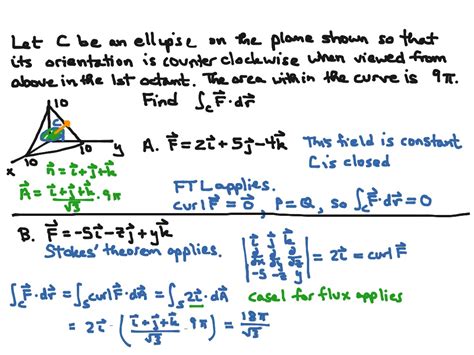 Let C be an ellipse on the plane shown so that
its orientation is counter clockwise when viewed from
above in the 1st octant. The area within the curve is 9π.
Find ∫_C F⃗·dr⃗
10
C
y
x 10 10
n⃗ = i⃗+j⃗+k⃗
A⃗ = (i⃗+j⃗+k⃗)/√3 · 9π
A. F⃗ = 2i⃗ + 5j⃗ - 4k⃗
This field is constant
C is closed
FTL applies.
curl F⃗ = 0⃗, P = Q, so ∫_C F⃗·dr⃗ = 0
B. F⃗ = -5i⃗ - zj⃗ + yk⃗
Stokes' theorem applies.
| i⃗ j⃗ k⃗ |
| ∂/∂x ∂/∂y ∂/∂z | = 2i⃗ = curl F⃗
| -5 -z y |
∫_C F⃗·dr⃗ = ∫_S curl F⃗·dA⃗ = ∫_S 2i⃗·dA⃗ case 1 for flux applies
= 2i⃗ · ( (i⃗+j⃗+k⃗)/√3 · 9π ) = 18π/√3